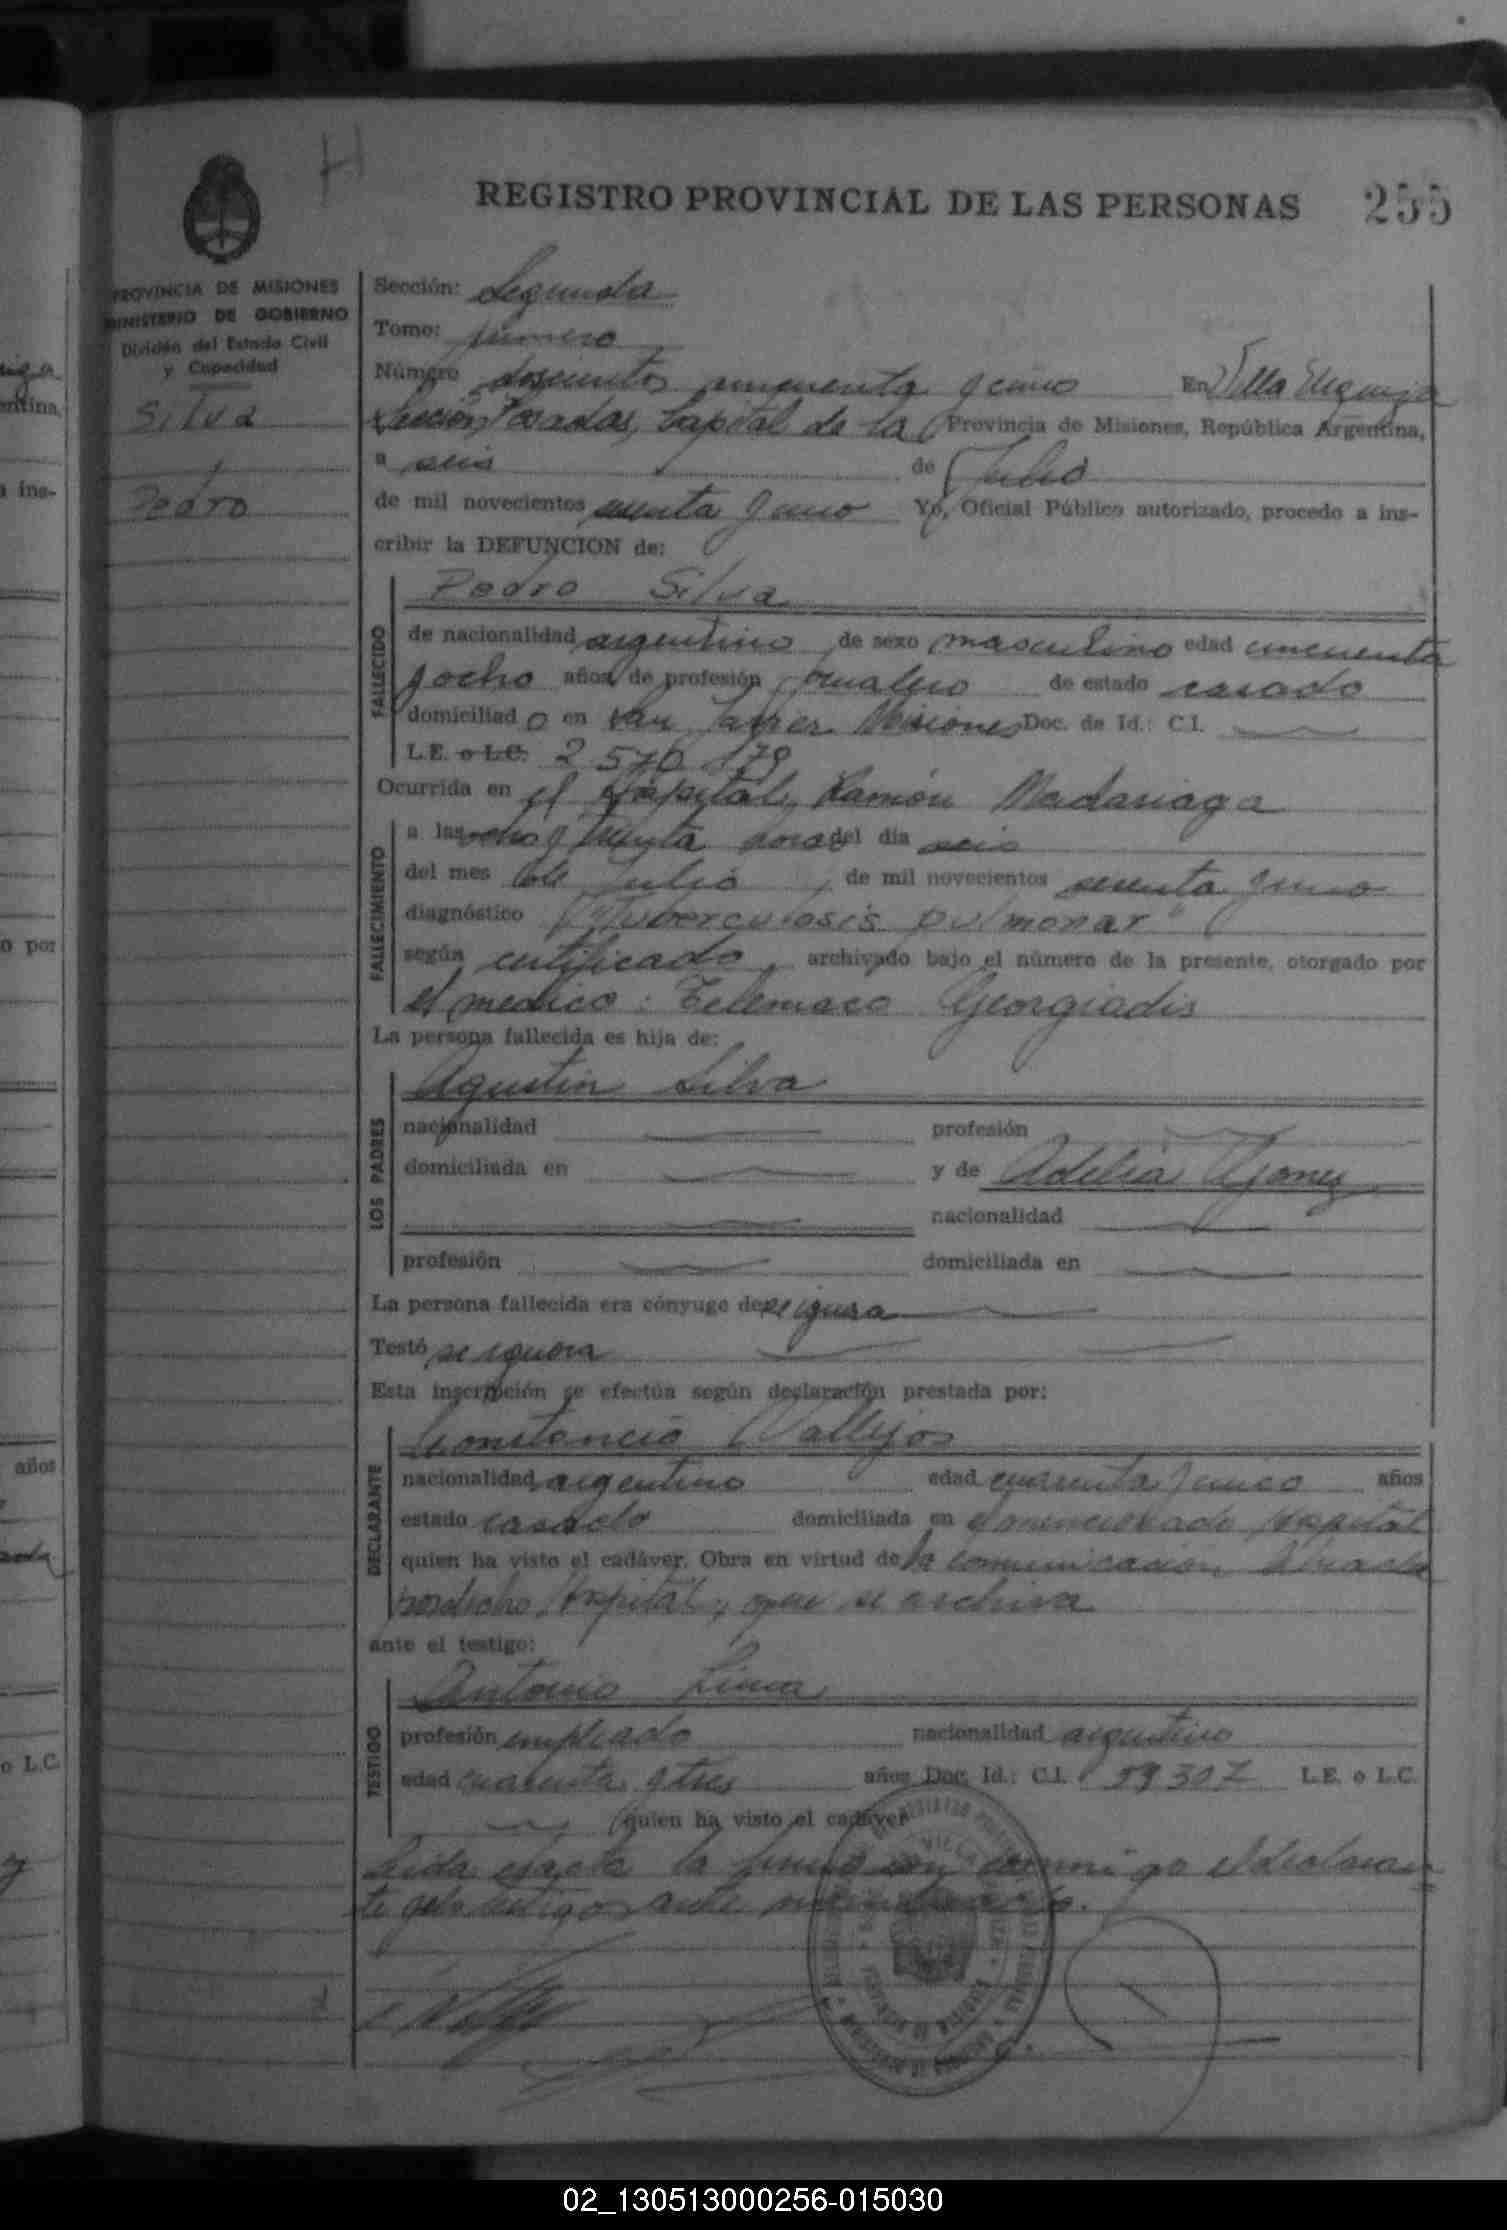 H
REGISTRO PROVINCIAL DE LAS PERSONAS 255
PROVINCIA DE MISIONES
MINISTERIO DE GOBIERNO
División del Estado Civil
y Capacidad
Silva
Pedro
Sección: Segunda
Tomo: primero
Número doscientos cincuenta y cinco En Villa Urquiza
Sección, Posadas, Capital de la Provincia de Misiones, República Argentina,
a seis de Julio
de mil novecientos sesenta y uno Yo, Oficial Público autorizado, procedo a ins-
cribir la DEFUNCION de:
Pedro Silva
FALLECIDO
de nacionalidad argentino de sexo masculino edad cincuenta
y ocho años de profesión jornalero de estado casado
domiciliado en San Javier Misiones Doc. de Id.: C.I.
L.E. o L.C. 2 570 179
Ocurrida en el Hospital Ramón Madariaga
FALLECIMIENTO
a las ocho y treinta horas del día seis
del mes de Julio de mil novecientos sesenta y uno
diagnóstico "Tuberculosis pulmonar"
según certificado archivado bajo el número de la presente, otorgado por
el medico: Telemaco Georgiadis
La persona fallecida es hija de:
LOS PADRES
Agustin Silva
nacionalidad profesión
domiciliada en y de Adelia Gomez
nacionalidad
profesión domiciliada en
La persona fallecida era cónyuge de se ignora
Testó se ignora
Esta inscripción se efectúa según declaración prestada por:
DECLARANTE
Constancio Vallejos
nacionalidad argentino edad cuarenta y cinco años
estado casado domiciliada en el mencionado Hospital
quien ha visto el cadáver. Obra en virtud de la comunicación
por dicho Hospital, que se archiva
ante el testigo:
TESTIGO
Antonio Lima
profesión empleado nacionalidad argentino
edad cuarenta y tres años Doc. Id.: C.I. 59307 L.E. o L.C.
quien ha visto el cadáver
Leida esta acta la firman conmigo el declaran
te y el testigo ante
o por
años
o L.C.
02_130513000256-015030